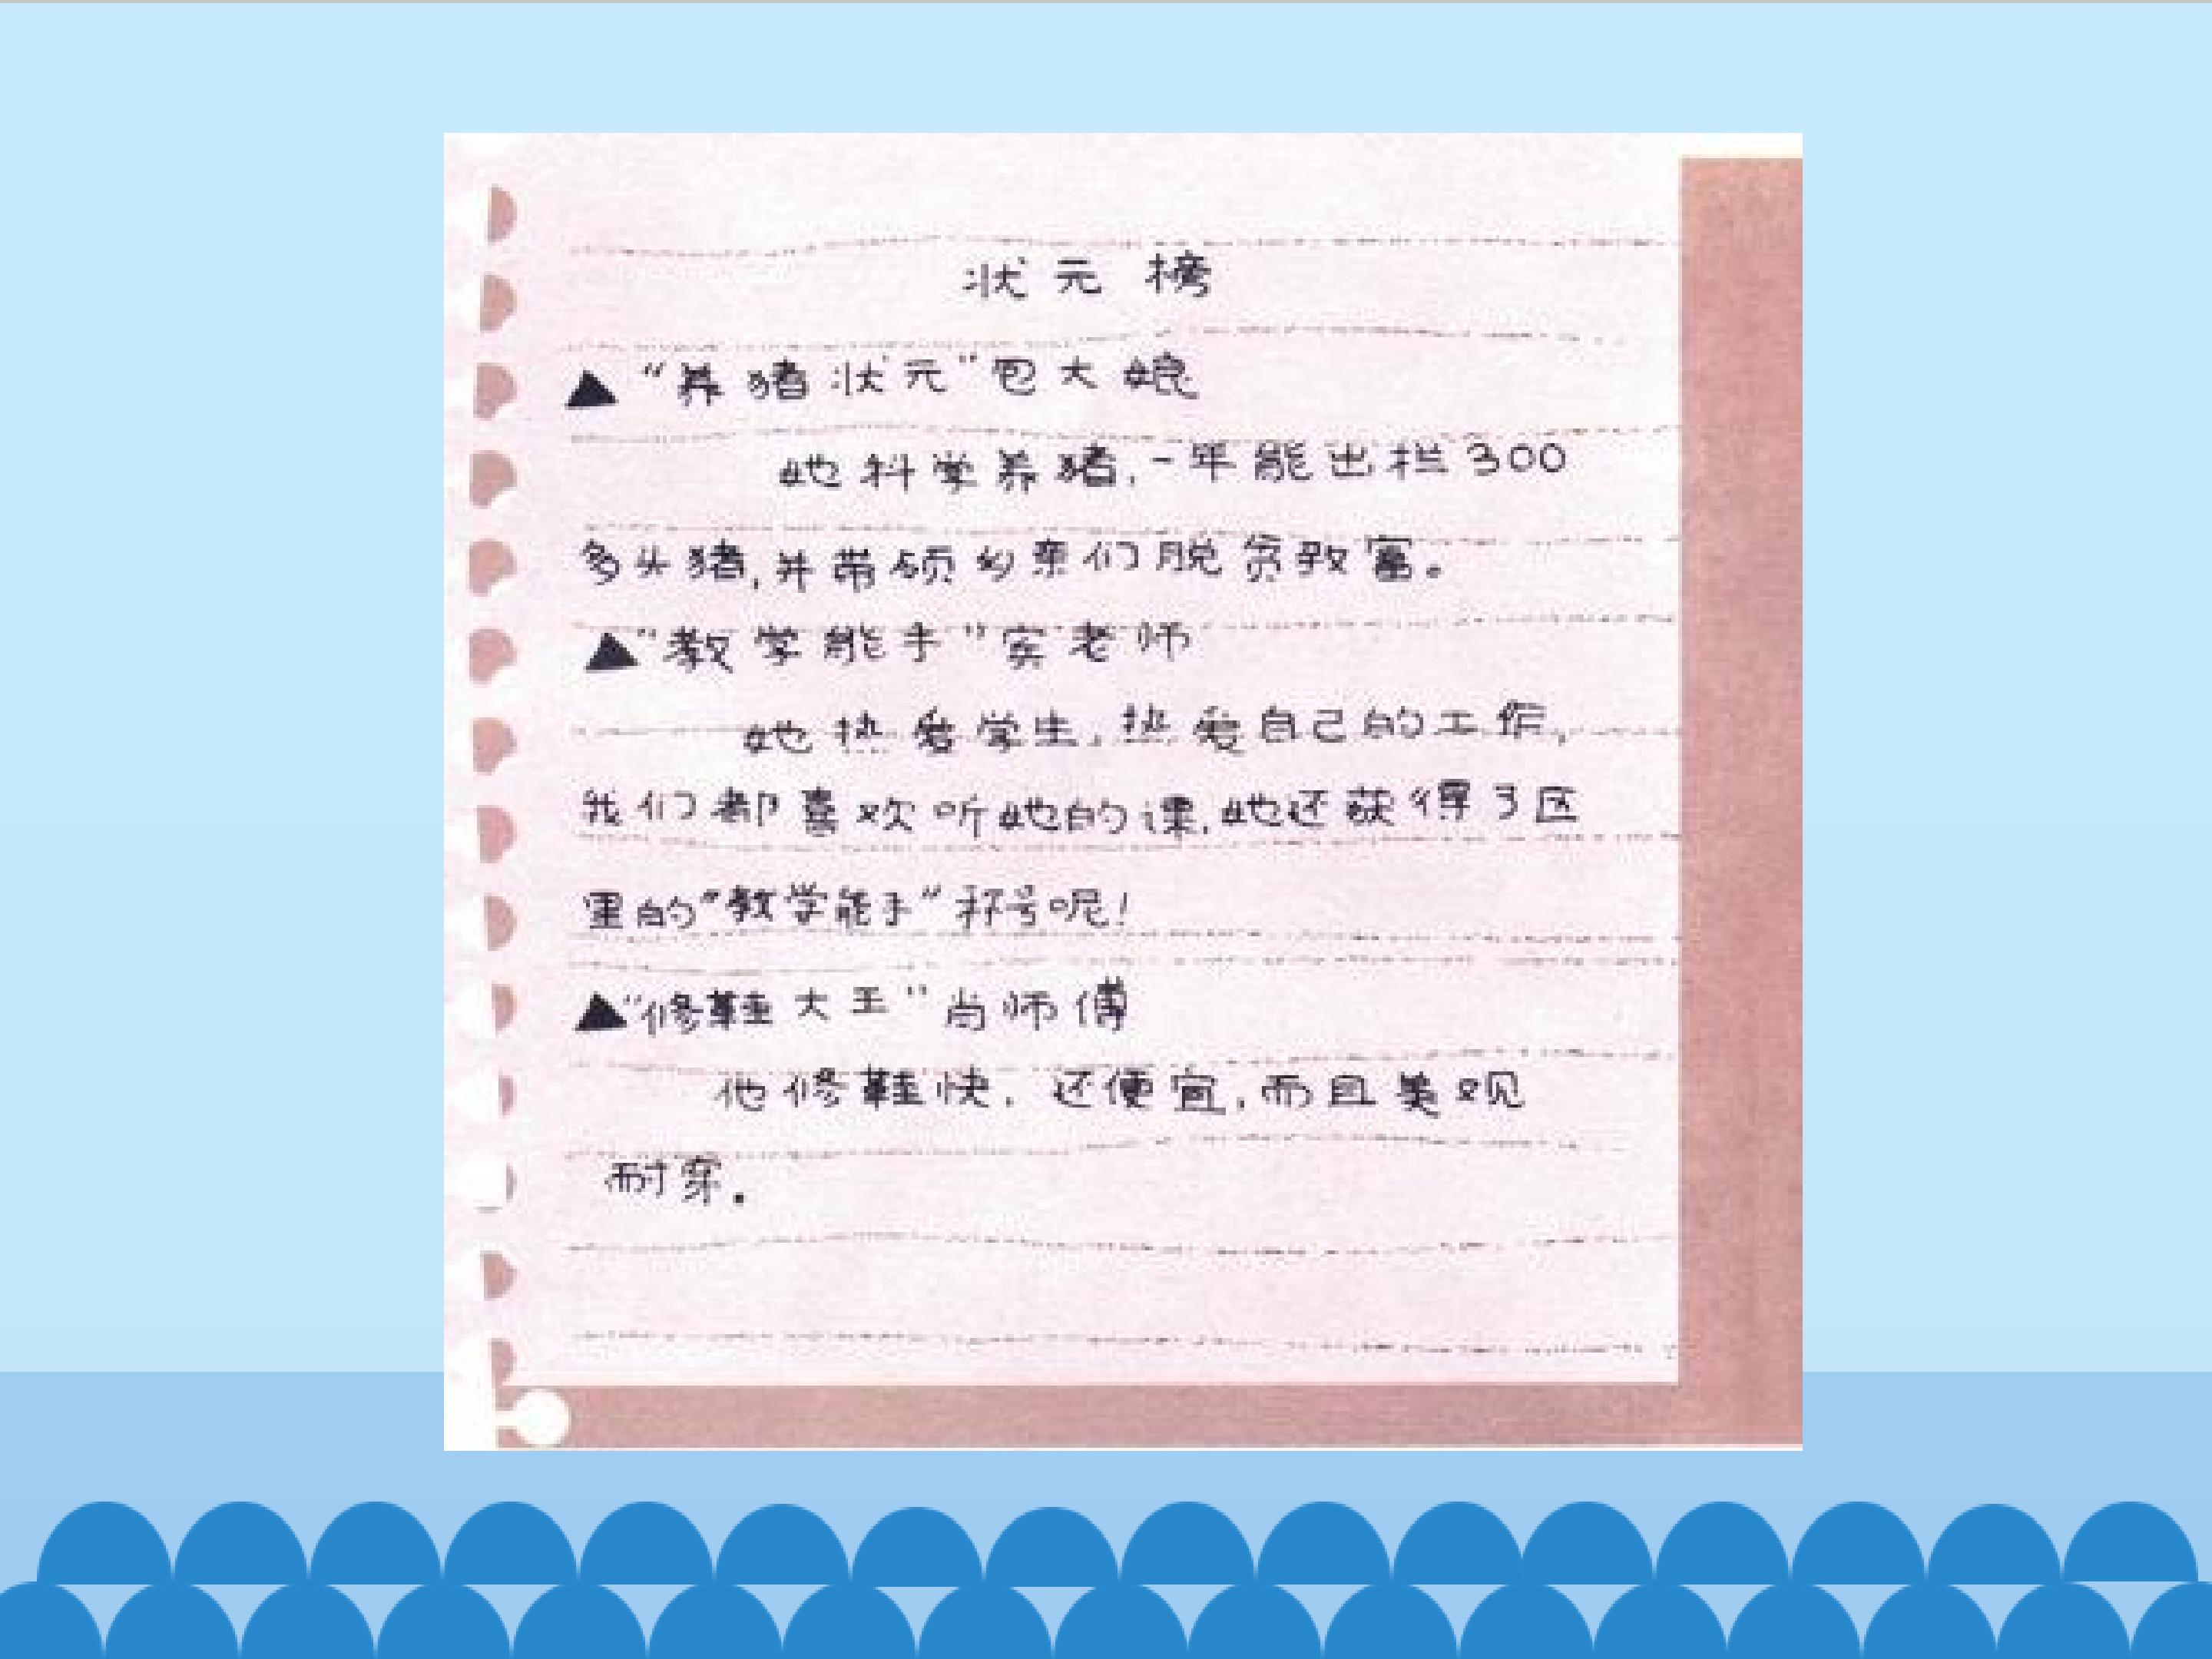 状元榜
▲“养猪状元”包大娘
她科学养猪，一年能出栏300
多头猪，并带领乡亲们脱贫致富。
▲“教学能手”安老师
她热爱学生，热爱自己的工作，
我们都喜欢听她的课，她还获得了区
里的“教学能手”称号呢！
▲“修鞋大王”尚师傅
他修鞋快，还便宜，而且美观
耐穿。